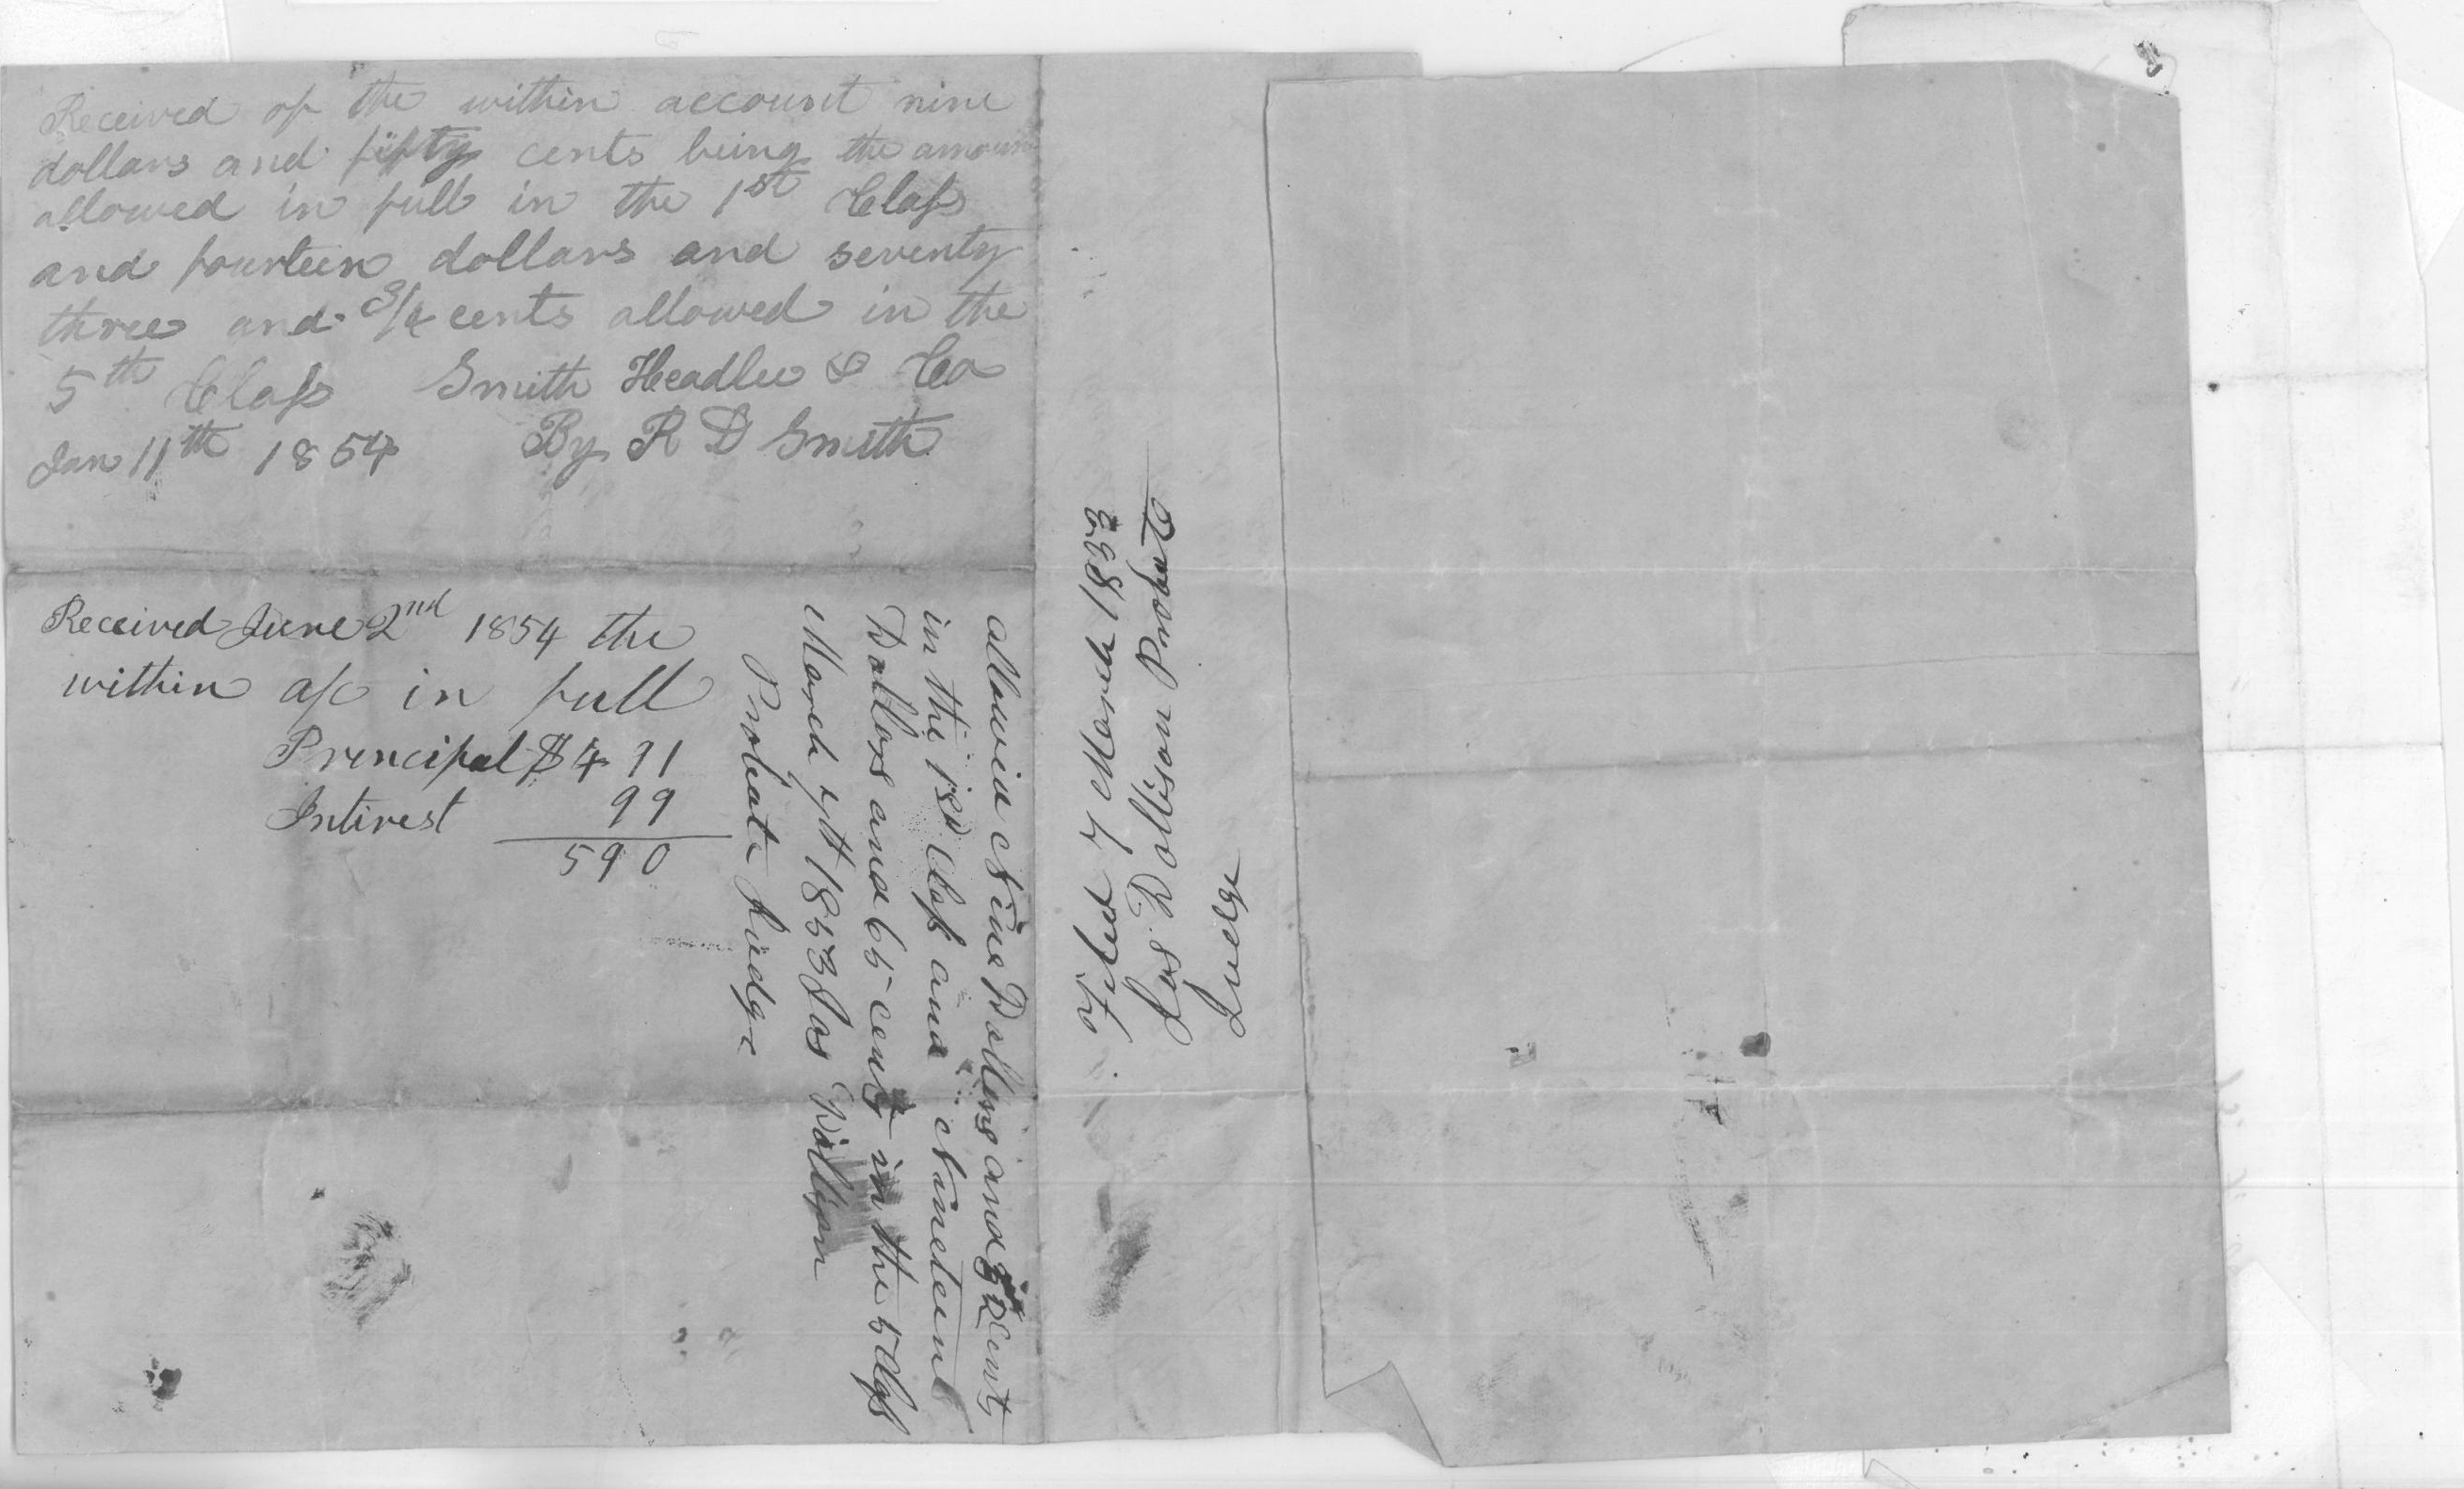 Received of the within account nine
dollars and fifty cents being the amoun
allowed in full in the 1st Class
and fourteen dollars and seventy
three and 3/4 cents allowed in the
5th Class Smith Headlee & Co
Jan 11th 1854 By R D Smith
Received June 2nd 1854 the
within a/c in full
Principal $4 91
Interest 99
5 90
allowed Nine Dollars and cents
in the 1st Class and Nineteen
Dollars and 65 cents in the 5 Class
March 7th 1853 Jas Dollison
Probate Judge
Filed 7 March 1853
Jas Dollison Probate
Judge